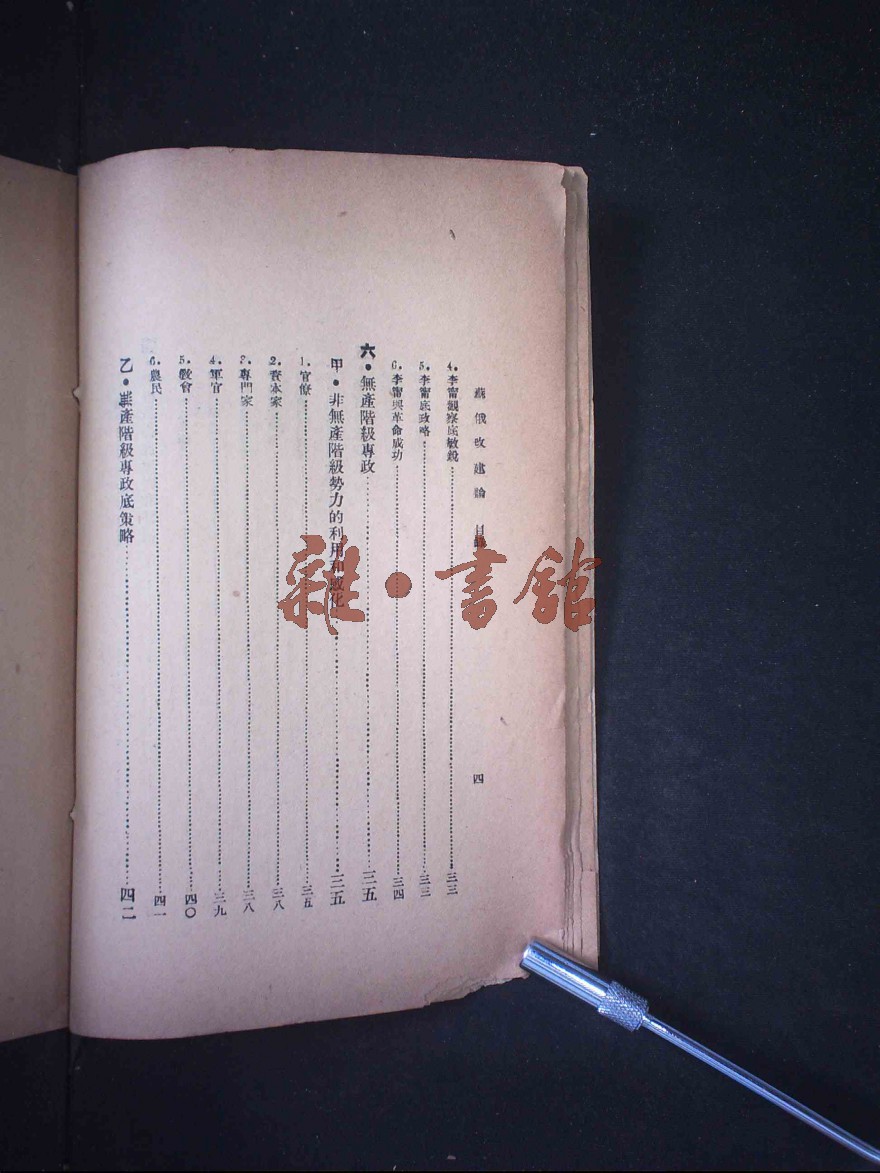 蘇俄改建論 目錄 四
4.李甯觀察底敏銳……三三
5.李甯底政略……三三
6.李甯與革命成功……三四
六.無產階級專政……三五
甲.非無產階級勢力的利用和感化……三五
1.官僚……三五
2.資本家……三八
3.專門家……三八
4.軍官……三九
5.教會……四〇
6.農民……四一
乙.無產階級專政底策略……四二
雜·書館